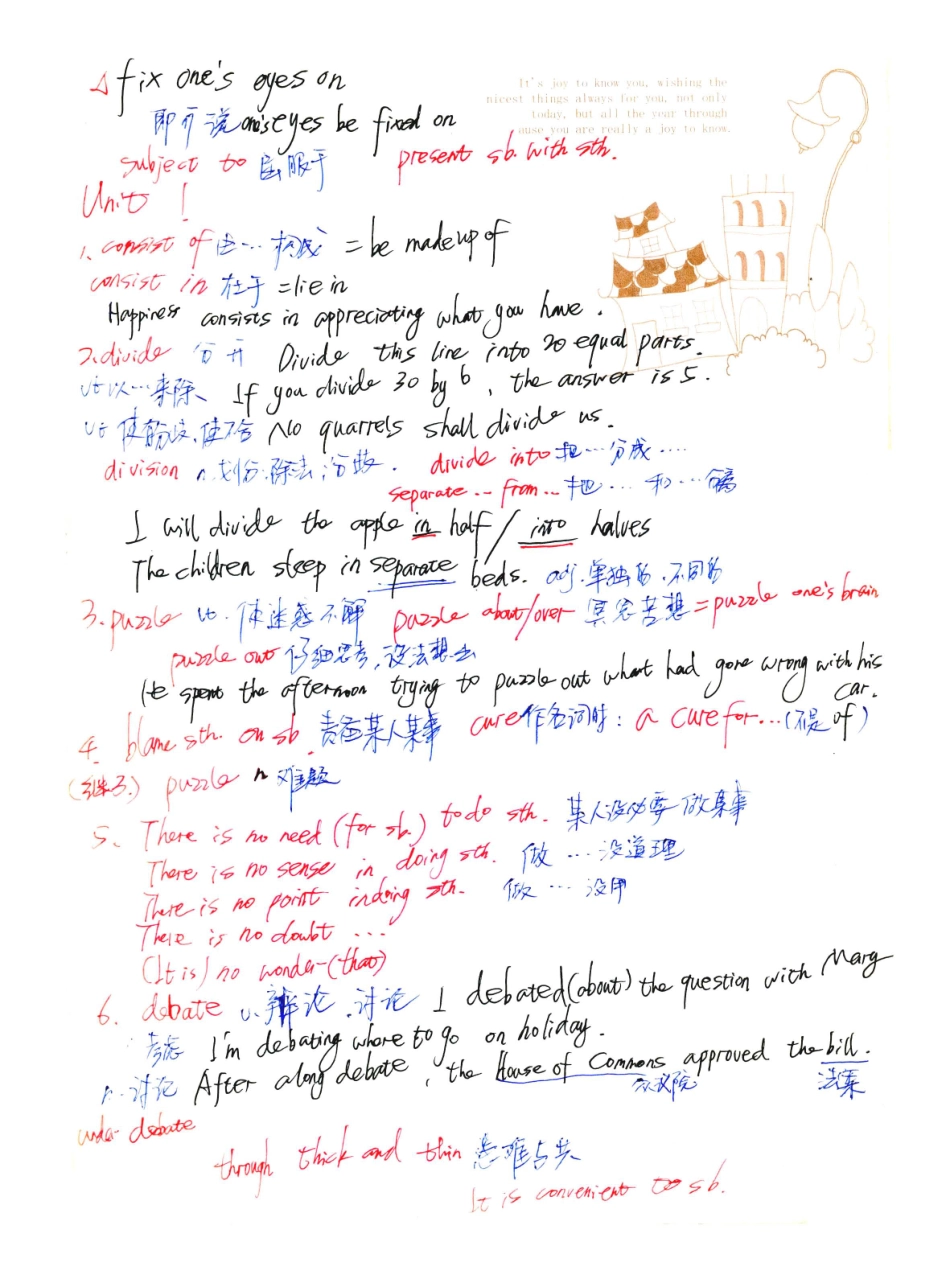 △ fix one's eyes on
It's joy to know you, wishing the
nicest things always for you, not only
today, but all the year through
ause you are really a joy to know.
即可说 one's eyes be fixed on
subject to 屈服于 present sb. with sth.
Unit 1
1. consist of 由… 构成 = be made up of
consist in 在于 = lie in
Happiness consists in appreciating what you have.
2. divide 分开 Divide this line into 20 equal parts.
vt 以…来除、 If you divide 30 by 6, the answer is 5.
vt 使分歧, 使不合 No quarrels shall divide us.
division n. 划分·除法; 分歧. divide into 把…分成…
separate … from … 把… 和…分离
I will divide the apple in half / into halves
The children sleep in separate beds. adj. 单独的, 不同的
3. puzzle vt. 使迷惑不解 puzzle about/over 冥思苦想 = puzzle one's brain
puzzle out 仔细思考, 设法想出
He spent the afternoon trying to puzzle out what had gone wrong with his
car.
4. blame sth. on sb. 责备某人某事 cure作名词时: a cure for…(不是 of)
(继3.) puzzle n 难题
5、 There is no need (for sb.) to do sth. 某人没必要做某事
There is no sense in doing sth. 做 …没道理
There is no point in doing sth. 做 … 没用
There is no doubt …
(It is) no wonder (that)
6. debate v. 辩论, 讨论 I debated (about) the question with Mary
考虑 I'm debating where to go on holiday.
n. 讨论 After a long debate, the House of Commons approved the bill.
众议院 法案
under debate
through thick and thin 患难与共
It is convenient to sb.